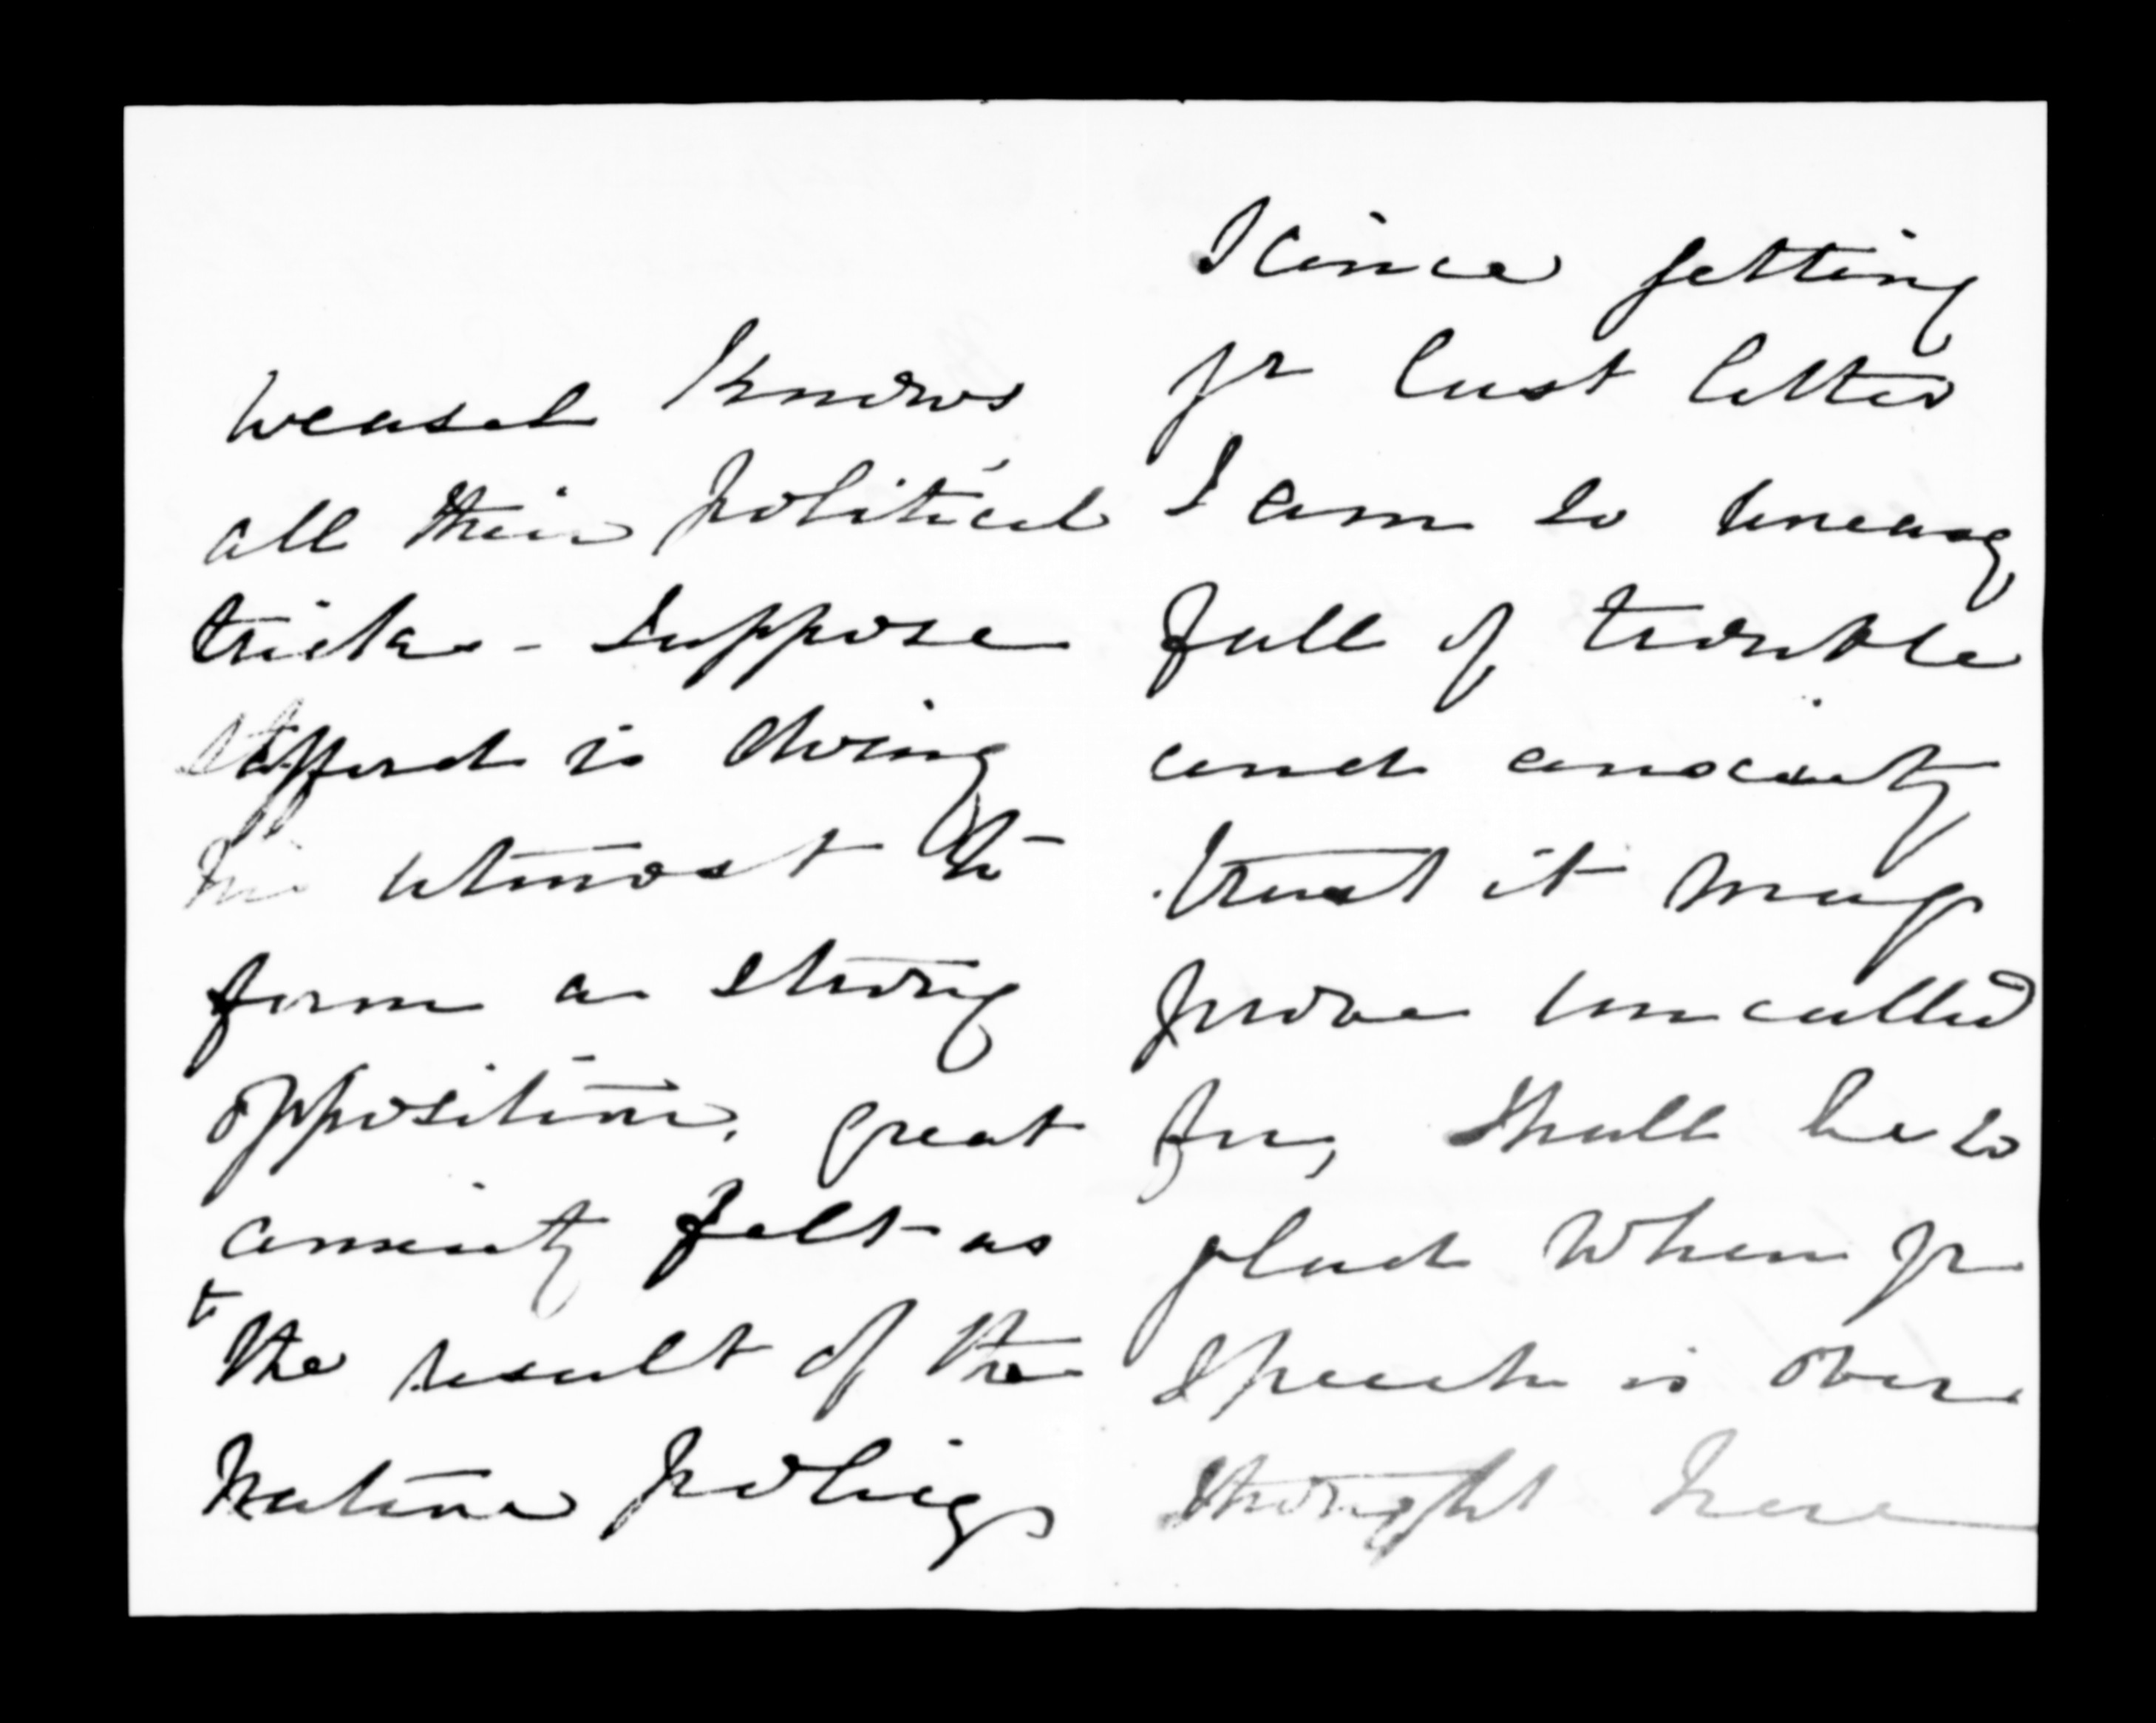 weasel knows
all their political
tricks - Suppose
Stafford is doing
his utmost to
form a strong
opposition, great
anxiety felt as
to
the result of the
Native policy
Since getting
yr last letter
I am so uneasy
full of trouble
and anxiety
trust it may
prove uncalled
for, Shall be so
glad when yr
Speech is over
thought here